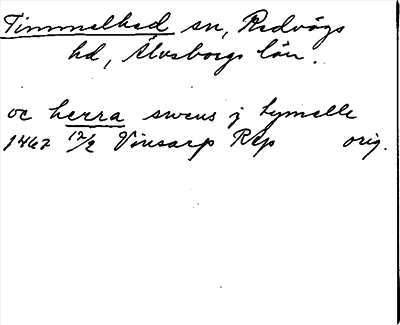 Timmelhed sn, Redvägs
hd, Älvsborgs län.
oc herra swens j tymelle
1462 12/2 Vinsarp RAp orig.